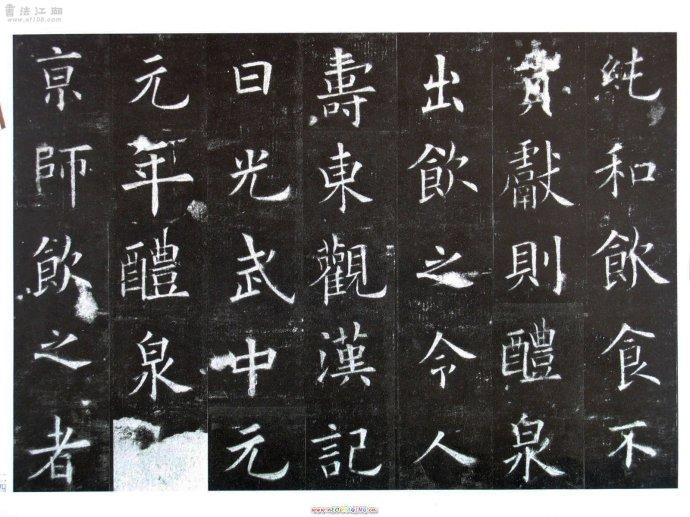 書法江湖
純和飲食不
貢獻則醴泉
出飲之令人
壽東觀漢記
曰光武中元
元年醴泉
京師飲之者